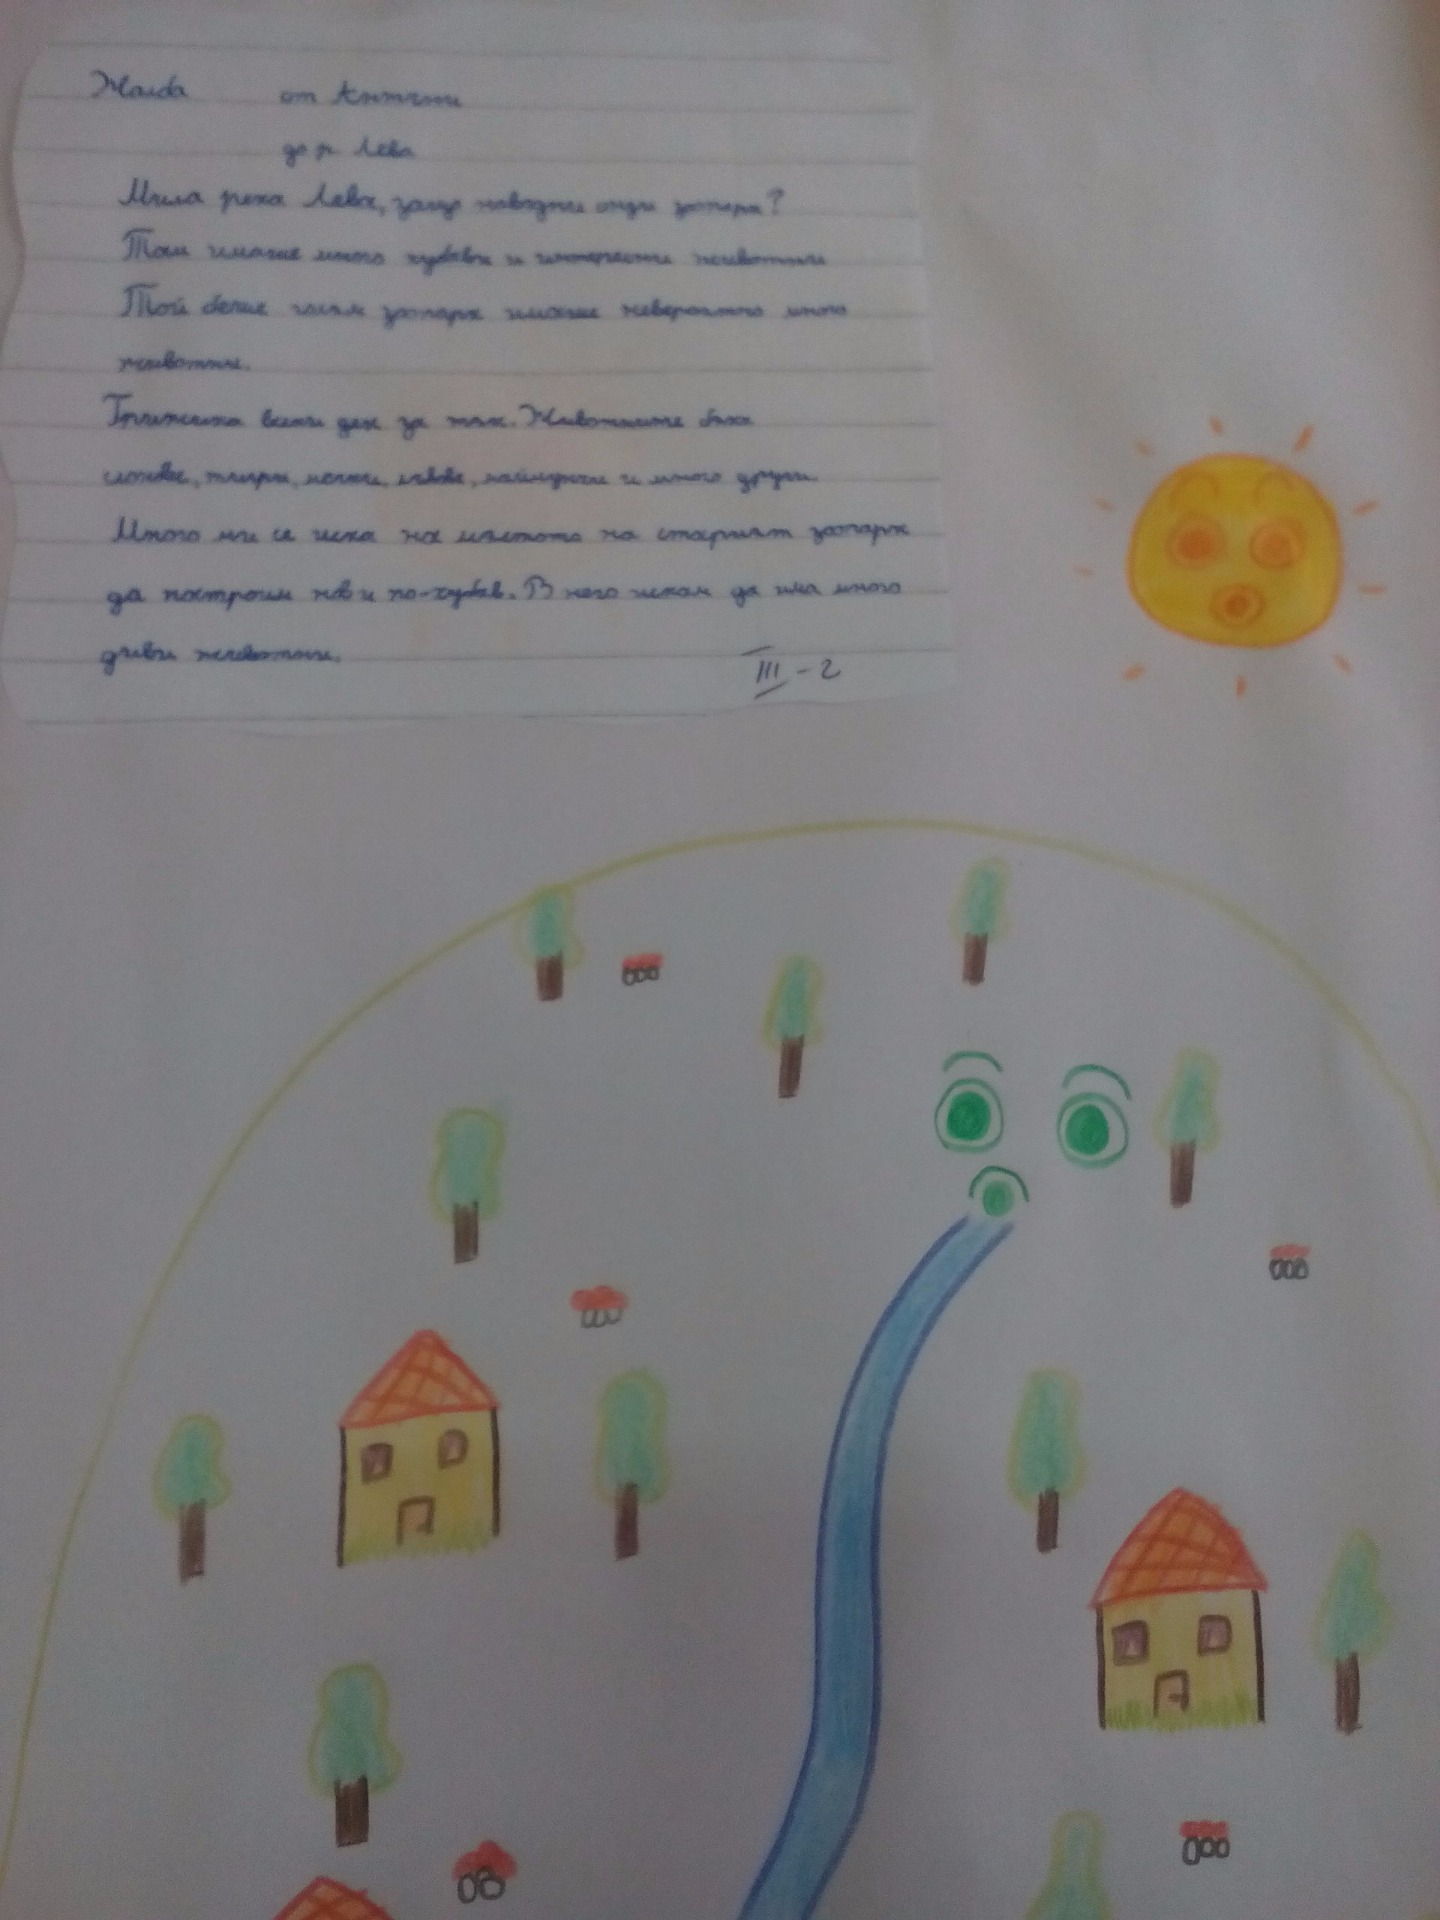 Жалба от Антъни
до р. Лева
Мила река Лева, защо наводни онзи зоопарк?
Там имаше много хубави и интересни животни
Той беше голям зоопарк имаше невероятно много
животни.
Грижеха всеки ден за тях. Животните бяха
слонове, тигри, мечки, лъвове, маймунки и много други.
Много ми се иска на мястото на старият зоопарк
да построим нов и по-хубав. В него искам да има много
диви животни.
III - 2